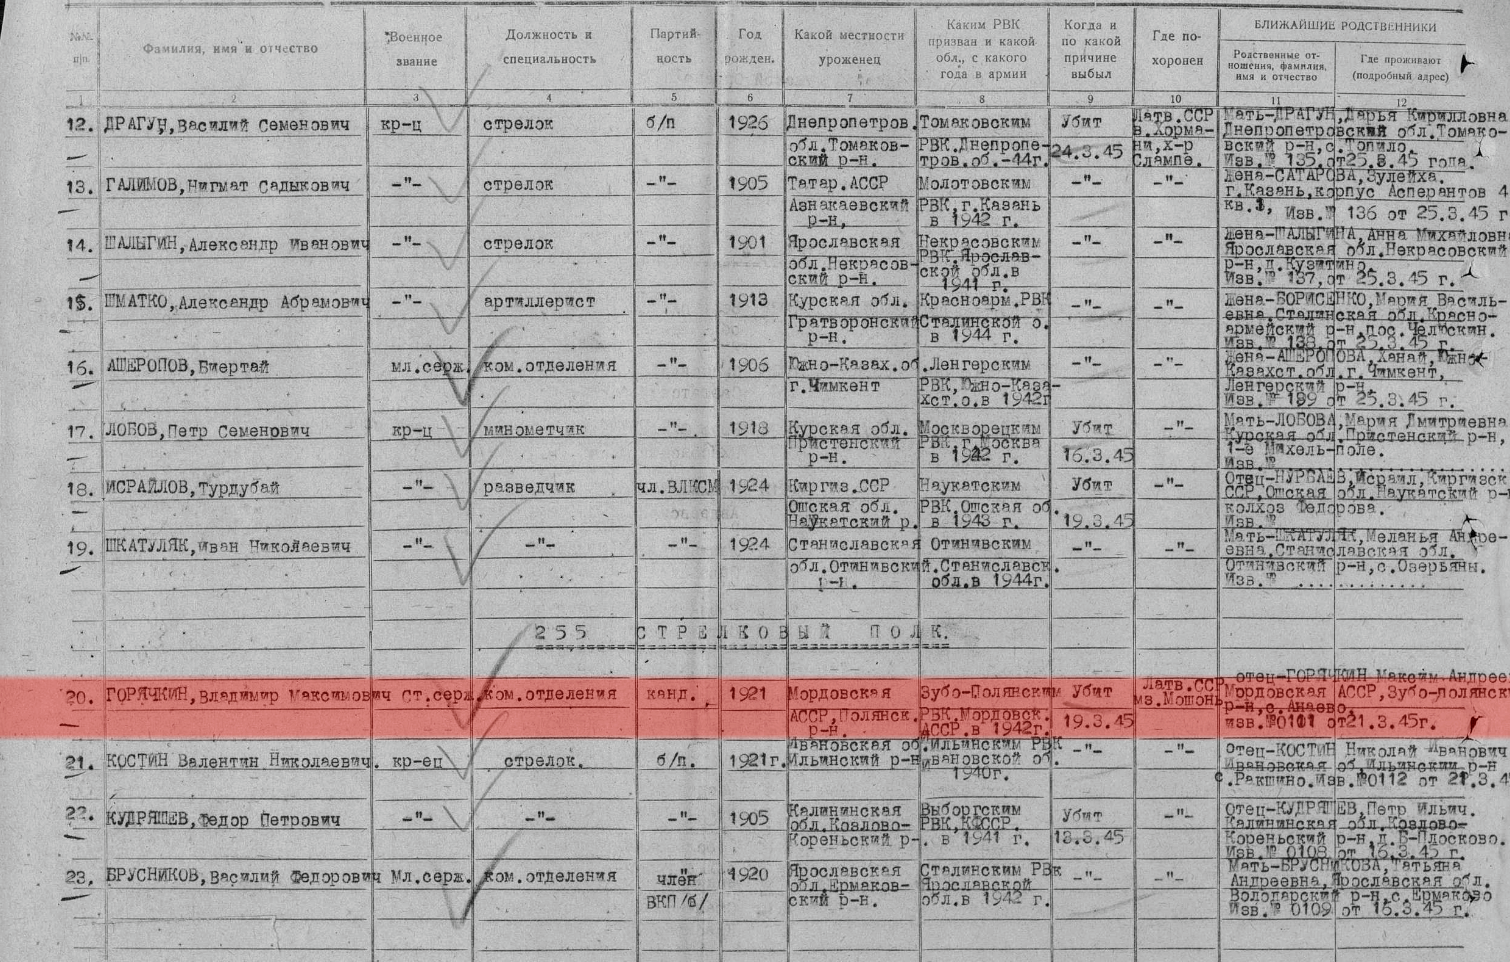 №№ п/п. Фамилия, имя и отчество Военное звание Должность и специальность Партийность Год рожден. Какой местности уроженец Каким РВК призван и какой обл., с какого года в армии Когда и по какой причине выбыл Где похоронен БЛИЖАЙШИЕ РОДСТВЕННИКИ
Родственные отношения, фамилия, имя и отчество Где проживают (подробный адрес)
1 2 3 4 5 6 7 8 9 10 11 12
12. ДРАГУН,Василий Семенович кр-ц стрелок б/п 1926 Днепропетров. Томаковским Убит Латв.ССР Мать-ДРАГУН,Дарья Кирилловна
в.Хорма- Днепропетровский обл.Томако-
обл.Томаков- РВК.Днепропе- 24.3.45 ни,х-р вский р-н,с.Топило.
ский р-н. тров.об.-44г. Слампе. Изв.№ 135.от25.3.45 года.
13. ГАЛИМОВ,Нигмат Садыкович -"- стрелок -"- 1905 Татар.АССР Молотовским -"- -"- Жена-САТАРОВА,Зулейха.
г.Казань,корпус Асперантов 4
Азнакаевский РВК,г.Казань кв.1, Изв.№ 136 от 25.3.45 г
р-н, в 1942 г.
14. ШАЛЫГИН,Александр Иванович -"- стрелок -"- 1901 Ярославская Некрасовским -"- -"- Жена-ШАЛЫГИНА,Анна Михайловна
РВК.Ярослав- Ярославская обл.Некрасовский
обл.Некрасов- ской обл.в р-н,д.Кузитино.
ский р-н. 1941 г. Изв.№ 137,от 25.3.45 г.
15. ШМАТКО,Александр Абрамович -"- артиллерист -"- 1913 Курская обл. Красноарм.РВК -"- -"- Жена-БОРИСЕНКО,Мария Василь-
евна.Сталинская обл.Красно-
Гратворонский Сталинской о. армейский р-н,пос.Челюскин.
р-н. в 1944 г. Изв.№ 138,от 25.3.45 г.
16. АШЕРОПОВ,Биертай мл.серж. ком.отделения -"- 1906 Южно-Казах.об. Ленгерским -"- -"- Жена-АШЕРОПОВА,Ханай,Южно-
Казахст.обл.г.Чимкент,
г.Чимкент РВК,Южно-Каза- Ленгерский р-н.
хст.о.в 1942г Изв.№ 139 от 25.3.45 г.
17. ЛОБОВ,Петр Семенович кр-ц минометчик -"- 1918 Курская обл. Москворецким Убит -"- Мать-ЛОБОВА,Мария Дмитриевна
Пристенский РВК,г.Москва Курская обл.Пристенский р-н,
р-н. в 1942 г. 16.3.45 1-е Михель-поле.
Изв.№ ..............
18. ИСРАЙЛОВ,Турдубай -"- разведчик чл.ВЛКСМ 1924 Киргиз.ССР Наукатским Убит -"- Отец-НУРБАЕВ,Исраил,Киргизск
ССР,Ошская обл.Наукатский р-н
Ошская обл. РВК.Ошская об. колхоз Федорова.
Наукатский р. в 1943 г. 19.3.45 Изв.№
19. ШКАТУЛЯК,Иван Николаевич -"- -"- -"- 1924 Станиславская Отинивским -"- -"- Мать-ШКАТУЛЯК,Меланья Андре-
евна,Станиславская обл.
обл.Отинивский РВК.Станиславск. Отинивский р-н,с.Озерьяны.
р-н. обл.в 1944г. Изв.№ ............
255 СТРЕЛКОВЫЙ ПОЛК.
20. ГОРЯЧКИН,Владимир Максимович Ст.серж. ком.отделения канд. 1921 Мордовская Зубо-Полянским Убит Латв.ССР отец-ГОРЯЧКИН Максим Андрее
мз.Мошонь Мордовская АССР,Зубо-полянск
АССР,Полянск. РВК.Мордовск. 19.3.45 р-н,с.Анаево.
р-н. АССР.в 1942г. изв.№0101 от21.3.45г.
21. КОСТИН Валентин Николаевич. кр-ец стрелок. б/п. 1921г. Ивановская об. Ильинским РВК -"- -"- отец-КОСТИН Николай Иванович
Ильинский р-н Ивановской об. Ивановская об.Ильинским р-н
1940г. с.Ракшино.Изв.№0112 от 21.3.4
22. КУДРЯШЕВ,Федор Петрович -"- -"- -"- 1905 Калининская Выборгским Убит -"- Отец-КУДРЯШЕВ,Петр Ильич.
обл.Козлово- РВК,КФССР. Калининская обл.Козлово-
Кореньский р-. в 1941 г. 13.3.45 Кореньский р-н,д.Б-Плосково.
Изв.№ 0108 от 16.3.45 г.
23. БРУСНИКОВ,Василий Федорович Мл.серж. ком.отделения член 1920 Ярославская Сталинским РВК -"- -"- Мать-БРУСНИКОВА,Татьяна
обл.Ермаков- Ярославской Андреевна,Ярославская обл.
ВКП/б/ ский р-н. обл.в 1942 г. Володарский р-н,с.Ермаково
Изв.№ 0109 от 16.3.45 г.